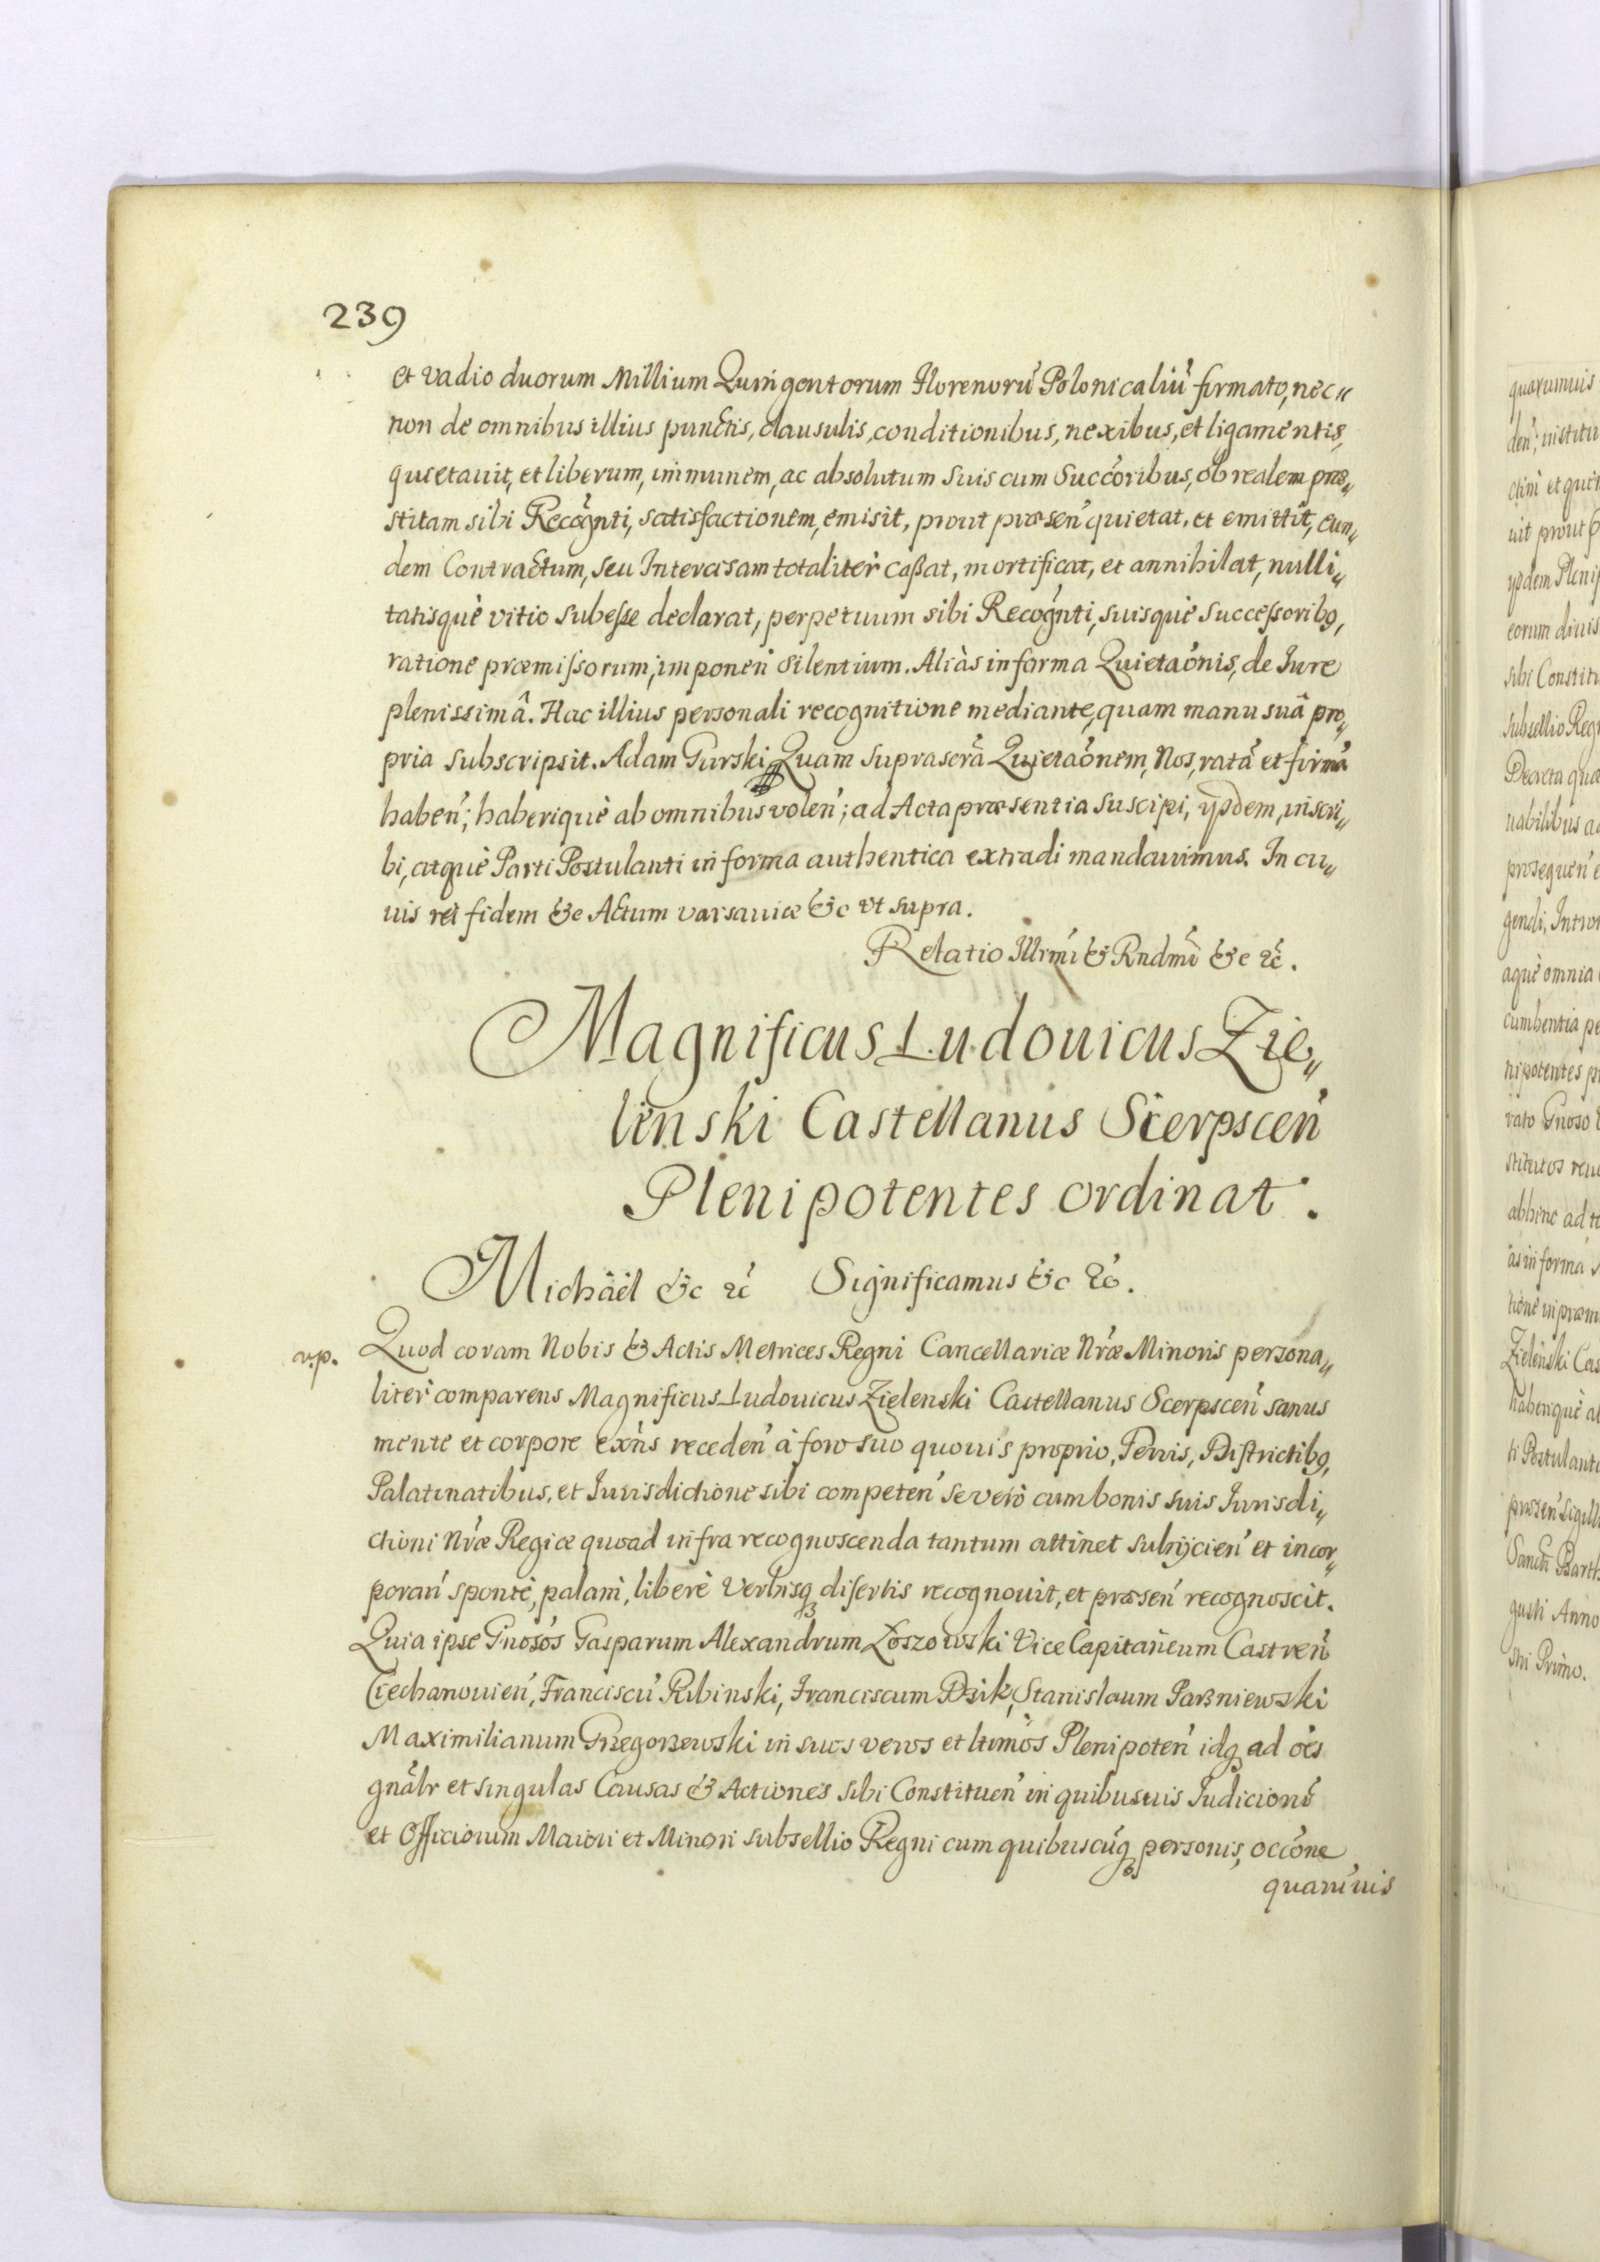 239
et vadio duorum Millium Quingentorum Florenorū Polonicaliū firmato, nec„
non de omnibus illius punctis, clausulis, conditionibus, nexibus, et ligamentis,
quietauit, et liberum, immunem, ac absolutum suis cum Succoribus, ob realem præ„
stitam sibi Recognti, satisfactionem, emisit, prout præsen̄ quietat, et emittit, eun„
dem Contractum, seu Intercisam totaliter caßat, mortificat, et annihilat, nulli„
tatisquè vitio subeſse declarat, perpetuum sibi Recognti, suisquè Succeſsoribꝰ,
ratione præmiſsorum, imponen̄ silentium. Aliàs in forma Quietaōnis, de Iure
plenissimâ. Hac illius personali recognitione mediante, quam manu suâ pro„
pria subscripsit. Adam Gurski, Quam suprascrā Quietaōnem, Nos, ratā et firmā
haben̄; haberiquè ab omnibus volen̄; ad Acta præsentia suscipi, ijsdem, inscri„
bi, atquè Parti Postulanti in forma authentica extradi mandauimus. In cu„
uis rei fidem &c Actum varsauiæ &c vt supra.
Relatio Illrmi & Rndmi &c &c.
Magnificus Ludouicus Zie„
linski Castellanus Scierpscen̄
Plenipotentes ordinat.
Michaël &c &c Significamus &c &c.
a.p.
Quod coram Nobis & Actis Metrices Regni Cancellariæ Nr̄æ Minoris persona„
liter comparens Magnificus Ludouicus Zielenski Castellanus Scerpscen̄ sanus
mente et corpore exn̄s receden̄ à foro suo quouis proprio, Terris, Districtibꝰ,
Palatinatibus, et Iurisdictione sibi competen̄ se verò cum bonis suis Iurisdi„
ctioni Nr̄æ Regiæ quoad infra recognoscenda tantum attinet subijcien̄ et incor„
poran̄ spontè, palam, liberè verbisq disertis recognouit, et præsen̄ recognoscit.
Quia ipse Gnosos Gasparum Alexandrum Łoszowski Vice Capitaneum Castren̄
Ciechanouien̄, Franciscū Ribinski, Franciscum Dzik, Stanislaum Parzniewski
Maximilianum Grzegorzewski in suos veros et ltimos Plenipoten̄ idq ad oēs
gnāłr et singulas Causas & Actiones sibi Constituen̄ in quibusuis Iudiciorū
et Officiorum Maiori et Minori subsellio Regni cum quibuscūq personis, occōne
quarūuis
quarumuis
den̄; institu
eorum diuis
sibi Constitu
subsellio Reg
Decreta quæ
prosequen̄ e
gendi, Intro
aquè omnia
cumbentia pe
nipotentes pr
vato Gnoso
stitutos reu
abhinc ad
as in forma
tione in præm
Zielenski Cas
habenquè a
ti Postulanti
præsen̄ sigill
Sancti Barth
gusti Anno
mi Primo.